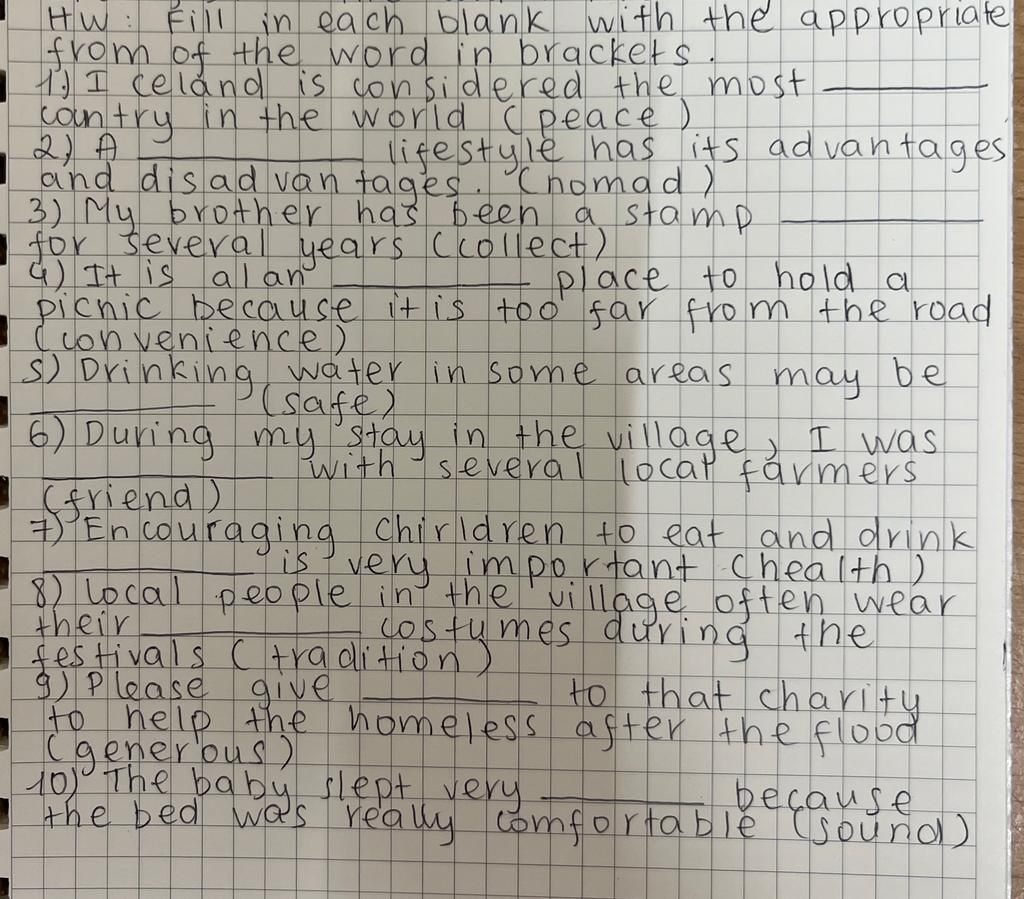 HW: Fill in each blank with the appropriate
from of the word in brackets.
1.) I celand is considered the most ________
country in the world (peace)
2) A ________ lifestyle has its advantages
and disadvantages. (nomad)
3) My brother has been a stamp ________
for several years (collect)
4) It is a/an ________ place to hold a
picnic because it is too far from the road
(convenience)
5) Drinking water in some areas may be
________ (safe)
6) During my stay in the village, I was
________ with several local farmers
(friend)
7) Encouraging chirldren to eat and drink
________ is very important (health)
8) Local people in the village often wear
their ________ costumes during the
festivals (tradition)
9) Please give ________ to that charity
to help the homeless after the flood
(generous)
10) The baby slept very ________ because
the bed was really comfortable (sound)